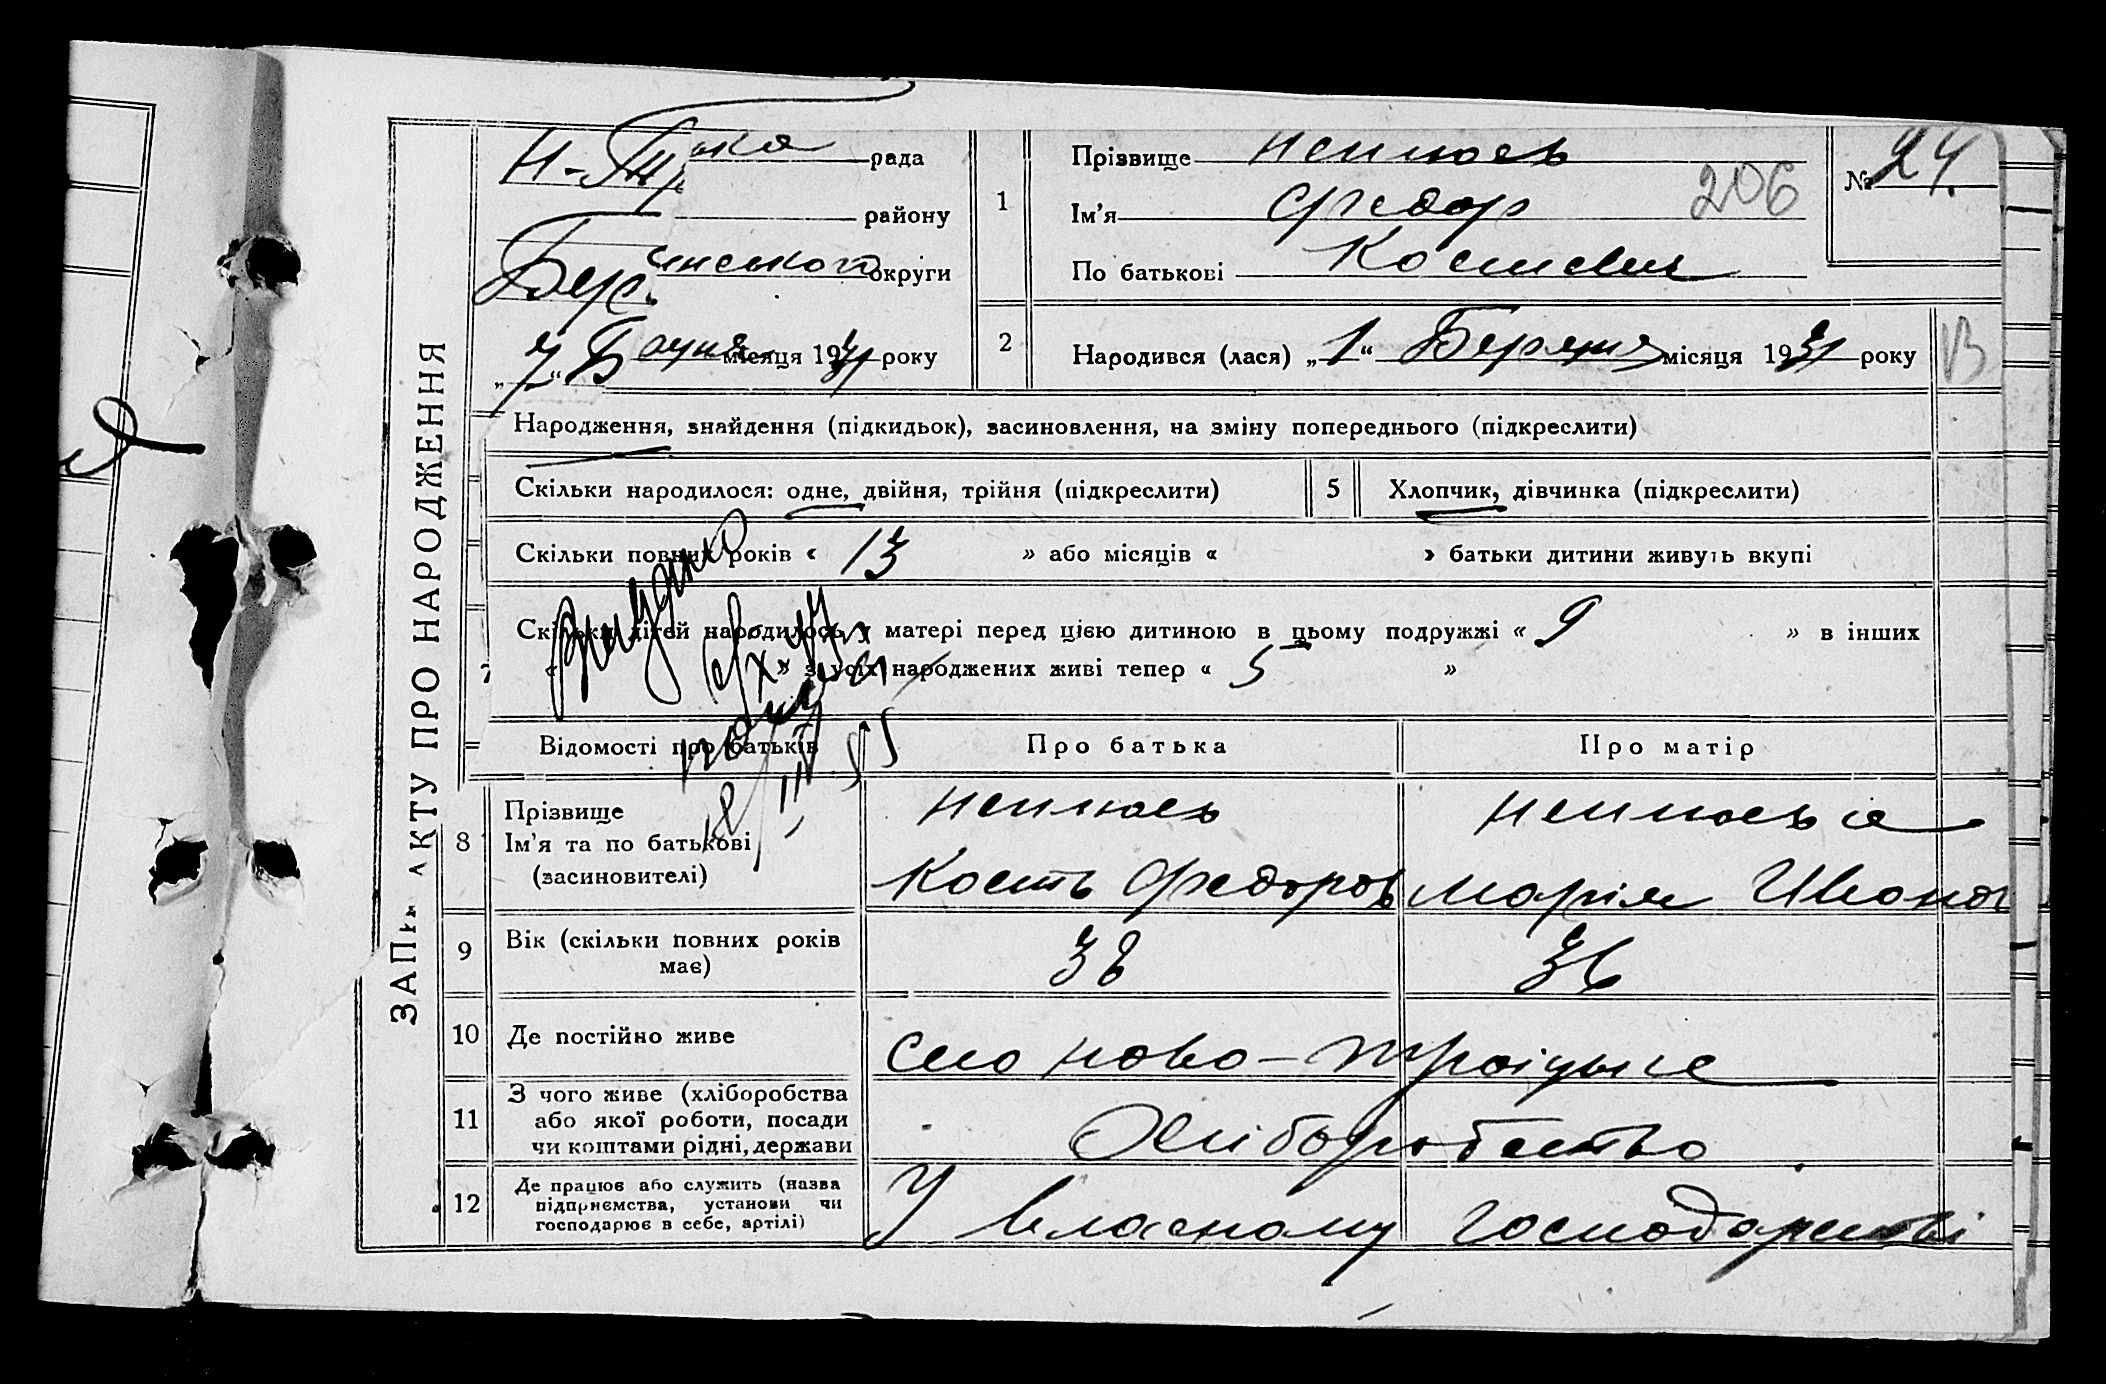 ЗАПИС АКТУ ПРО НАРОДЖЕННЯ
Н-Тр ька рада
району
Бер инського округи
„7“ Б  місяця 1931 року
1
Прізвище
Ім'я Федор
По батькові Костєвич
206
№ 24.
2
Народився (лася) „1“ Березня місяця 1931 року
Народження, знайдення (підкидьок), засиновлення, на зміну попереднього (підкреслити)
Скільки народилося: одне, двійня, трійня (підкреслити)
5
Хлопчик, дівчинка (підкреслити)
Скільки повних років « 13 » або місяців « » батьки дитини живуть вкупі
Скільки дітей народилось у матері перед цією дитиною в цьому подружжі « 9 » в інших
7 « » з усіх народжених живі тепер « 5 »
Відомості про батьків
Про батька
Про матір
8
Прізвище
Ім'я та по батькові
(засиновителі)
Кость Федоров
Марія Иванов
9
Вік (скільки повних років
має)
38
36
10
Де постійно живе
село Ново-Троіцьке
11
З чого живе (хліборобства
або якої роботи, посади
чи коштами рідні, держави
Хліборобство
12
Де працює або служить (назва
підприємства, установи чи
господарює в себе, артілі)
У власному господарстві